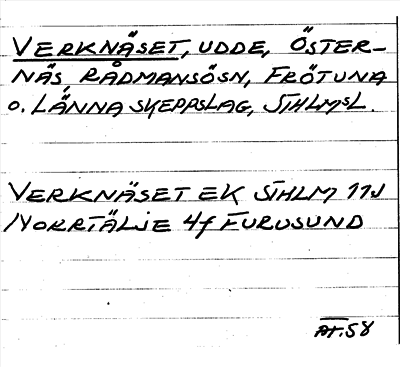 VERKNÄSET, UDDE, ÖSTER-
NÄS, RÅDMANSÖSN, FRÖTUNA
o. LÄNNA SKEPPSLAG, STHLMSL.
VERKNÄSET EK STHLM 11J
NORRTÄLJE 4f FURUSUND
AT.58